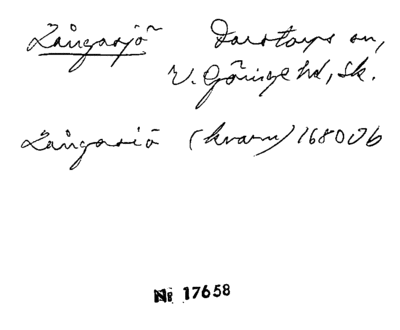 Långasjö Farstorps sn,
V. Göinge hd, Sk.
Långasiö (kvarn) 1680 Jb
Nr 17658